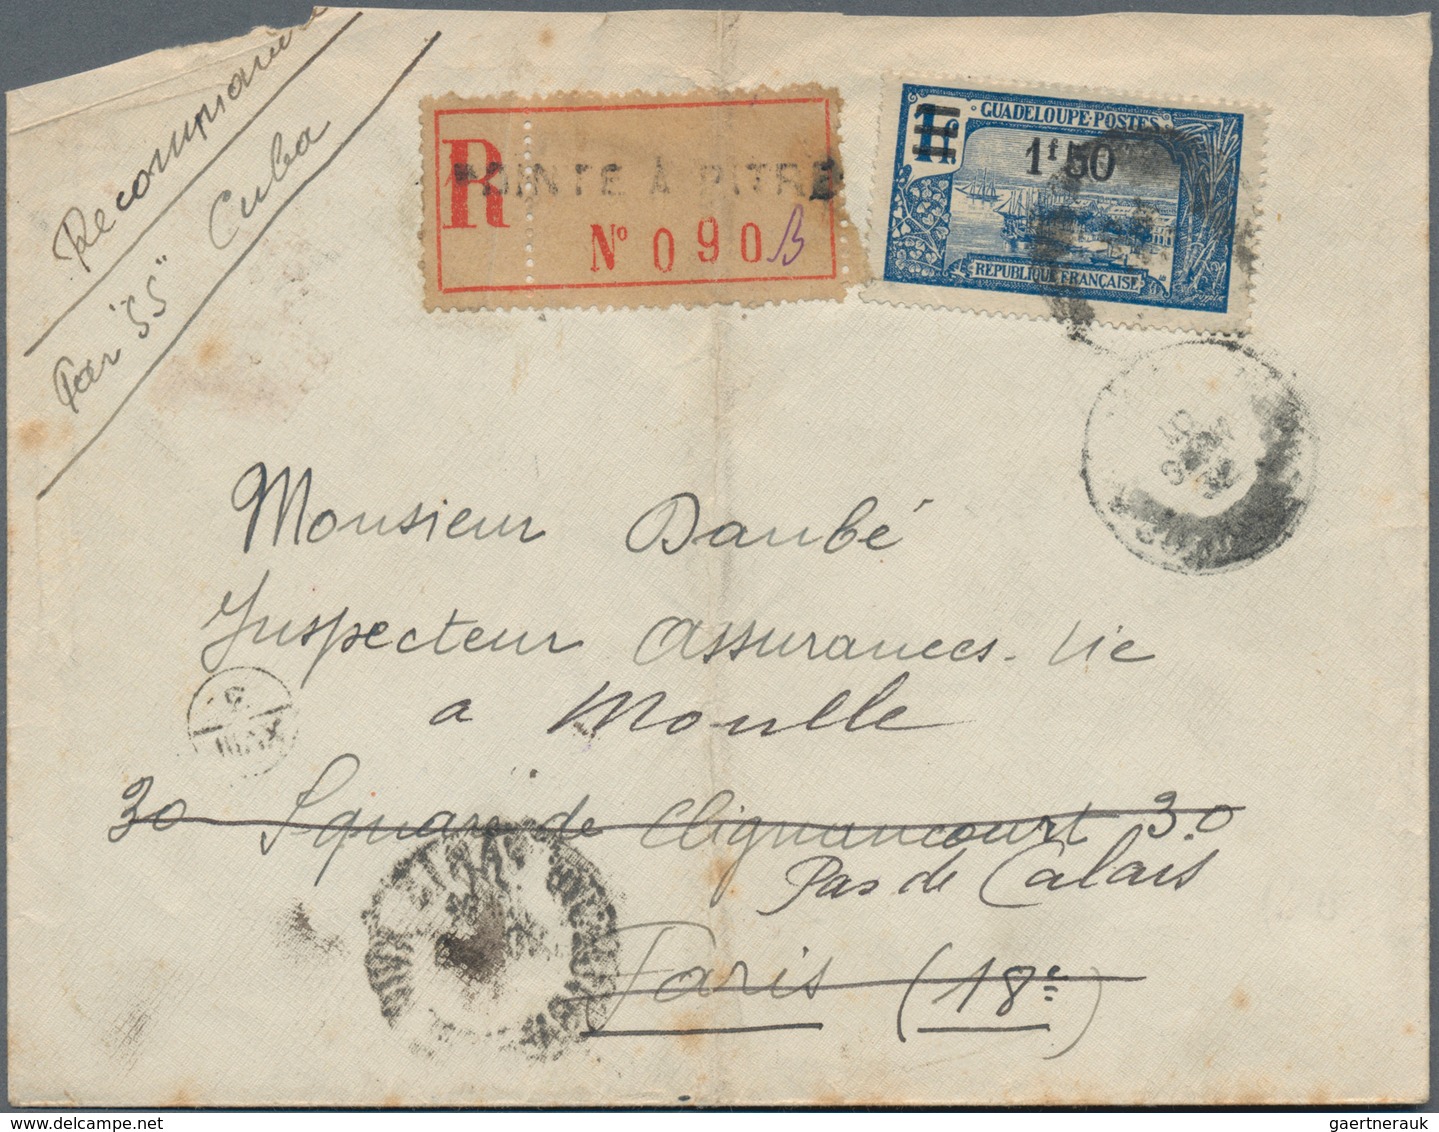 Recommandé
Par "SS" Cuba
R
POINTE À PITRE
N° 090 B
1f
GUADELOUPE·POSTES
1f 50
REPUBLIQUE FRANÇAISE
Monsieur Daubé
Inspecteur Assurances-Vie
a Moulle
30 Square de Clignancourt 30
Pas de Calais
Paris (18e)
gaertnerauk